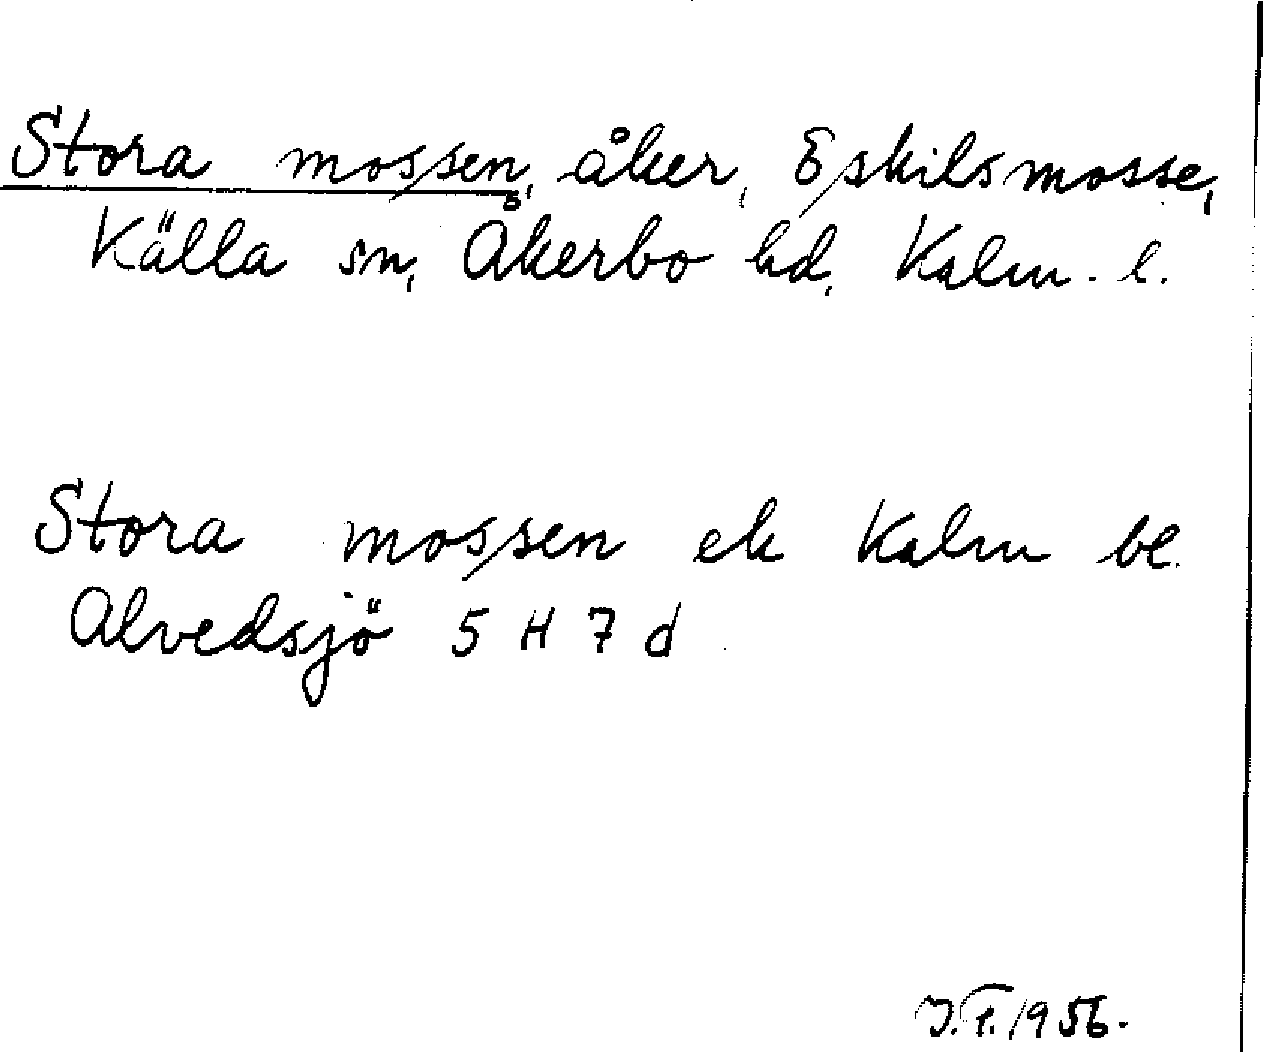 Stora mossen, åker, Eskilsmosse,
Källa sn, Åkerbo hd, Kalm. l.
Stora mossen ek Kalm bl.
Alvedsjö 5 H 7 d
J.T. 1956.